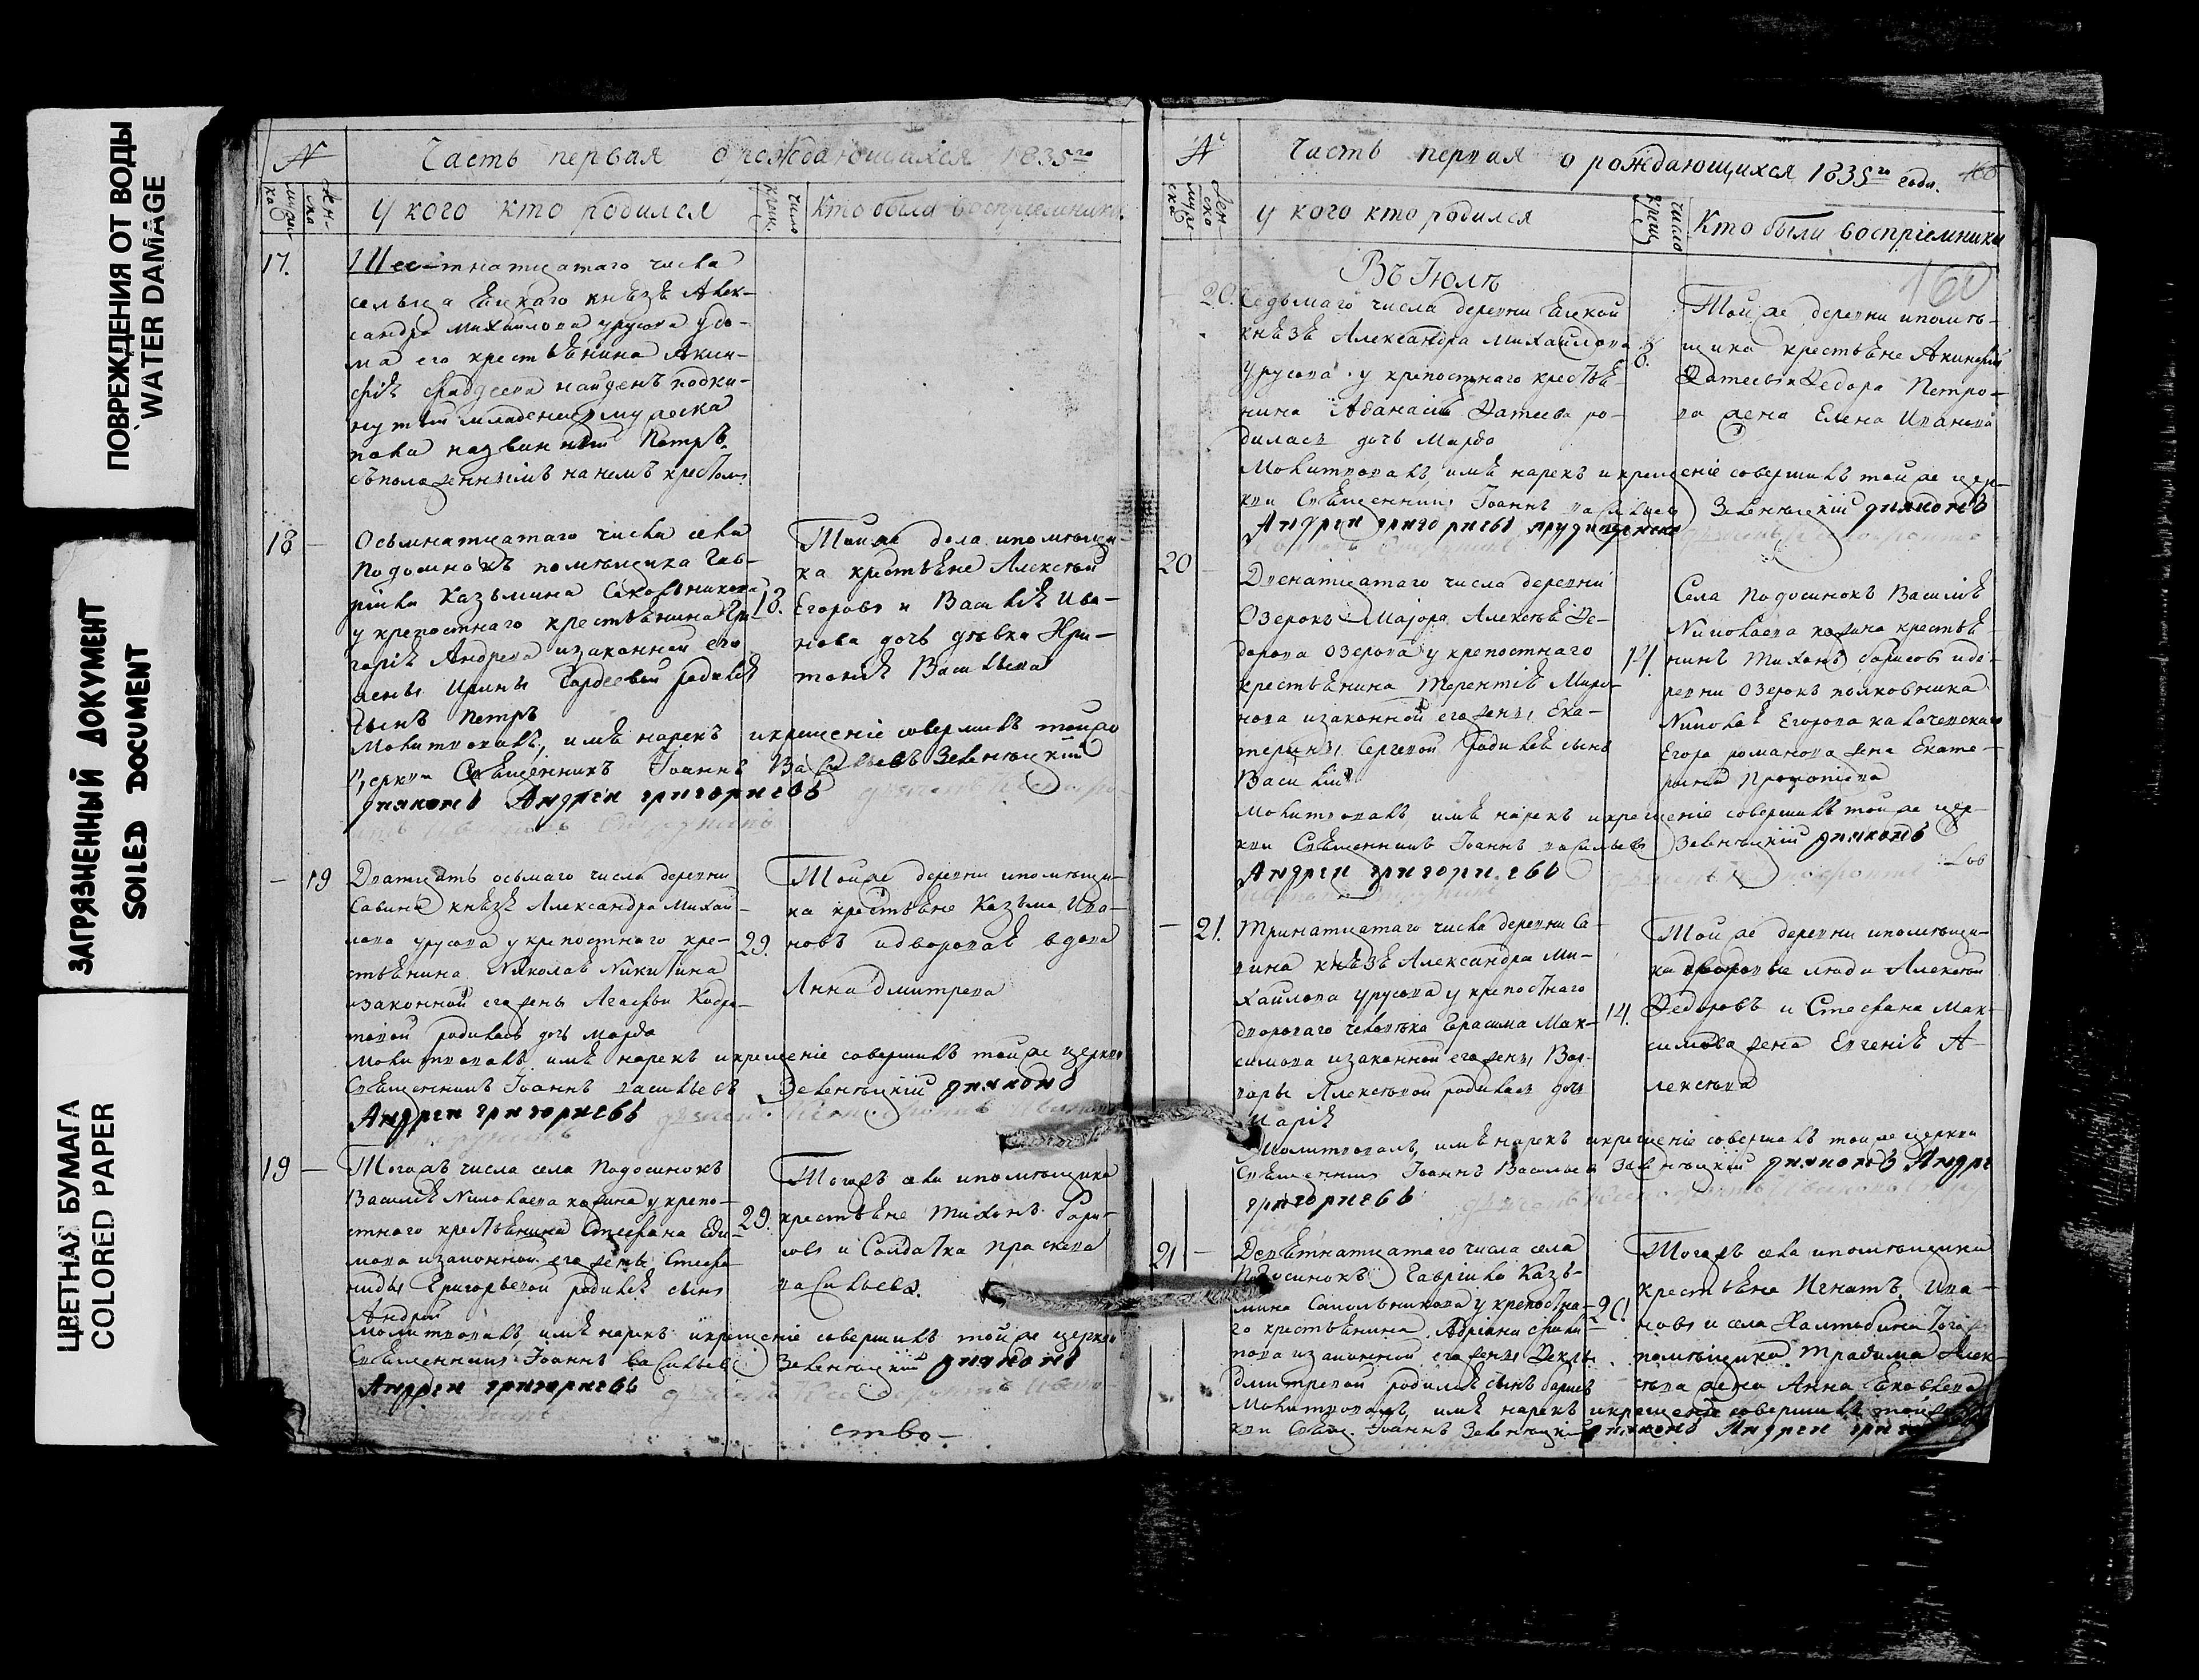 ПОВРЕЖДЕНИЯ ОТ ВОДЫ
WATER DAMAGE
ЗАГРЯЗНЕННЫЙ ДОКУМЕНТ
SOILED DOCUMENT
ЦВЕТНАЯ БУМАГА
COLORED PAPER
№
Часть первая о рождающихся 1835го
мужеска
женска
У кого кто родился
число крещ.
Кто были восприемники
17.
Шестнатцатаго числа
сельца князя Алек-
сандра Михайлова Урусова у до-
ма его крестьянина Акин-
фия Фаддеева найденъ подки-
нутый младенец муржеска
пола названный Петръ
съ положеннымъ на немъ крестомъ
18
Осьмнатцатаго числа села
Подосинокъ помѣщика Гав-
риила Казьмина Сокольникова
у крепостнаго крестьянина Гри-
горія Андрева изаконной его
жены Ирины Гордеевой родился
сынъ Петръ
18.
Той же помѣщи-
ка крестьяне Алексѣй
Егоровъ и Василія Ива-
нова дочь дѣвка
Васильева
Молитвовалъ, имя нарекъ и крещеніе совершилъ той же
церкви Священникъ Іоаннъ Васильевъ Зеленецкій
дияконъ Андреи григориевъ
19
Дватцать осьмаго числа деревни
Савина князя Александра Михай-
лова Урусова у крепостнаго кре-
стьянина Николая Никитина
изаконной его жены Агафьи Кодра-
товой родилась дочь Марфа
29.
Той же деревни ипомѣщи-
ка крестьяне Казьма Ива-
новъ идворовая вдова
Анна Дмитрева
Молитвовалъ имя нарекъ и крещеніе совершилъ той же церкви
Священникъ Іоаннъ Васильевъ Зеленецкій дияконъ
Андреи григориевъ
19
Тогожъ числа села Подосинокъ
Василія Николаева у крепо-
стнаго крестьянина Стефана Еди-
мова изаконной его жены Стефа-
ниды Григорьевой родился сынъ
Андрей
29.
Тогожъ села ипомѣщика
крестьяне Тихонъ Бори-
совъ и Солдатка Прасковья
Васильева.
Молитвовалъ, имя нарекъ и крещеніе совершилъ той же церкви
Священникъ Іоаннъ Васильевъ Зеленецкій дияконъ
Андреи григориевъ
ство-
№
Часть первая о рождающихся 1835го года.
160
мужеска
женско
У кого кто родился
число крещ.
Кто были восприемники
160
Въ Іюлѣ
20.
Седьмаго числа деревни
князя Александра Михайлова
Урусова у крепостнаго крестья-
нина Афанасія Фатеева ро-
дилась дочь Марфа
8.
Той же деревни ипомѣ-
щика крестьяне Акинфій
Фатеевъ и Федора Петро-
ва жена Елена Иванова
Молитвовалъ, имя нарекъ и крещеніе совершилъ той же цер-
кви Священникъ Іоаннъ Васильевъ Зеленецкій дияконъ
Андреи григориевъ
20
Двенатцатаго числа деревни
Озерокъ Маіора Алексѣя Фе-
дорова Озерова у крепостнаго
крестьянина Терентія Миро-
нова изаконной его жены Ека-
терины Сергевой родился сынъ
Василій
14.
Села Подосинокъ Василія
Николаева крестья-
нинъ Тихонъ Борисовъ иде-
ревни Озерокъ полковника
Николая Егорова
Егора Романова жена Екате-
рина Прокопіева
Молитвовалъ, имя нарекъ и крещеніе совершилъ той же цер-
кви Священникъ Іоаннъ Васильевъ Зеленецкій дияконъ
Андреи григориевъ
21.
Тринатцатаго числа деревни Са-
вина князя Александра Ми-
хайлова Урусова у крепостнаго
двороваго человѣка Герасима Мак-
симова изаконной его жены Вар-
вары Алексѣевой родилась дочь
Марія
14.
Той же деревни ипомѣщи-
ка дворовые люди Алексѣй
Федоровъ и Стефана Мак-
симова жена Евгенія А-
лексѣева
Молитвовалъ, имя нарекъ и крещеніе совершилъ той же церкви
Священникъ Іоаннъ Васильевъ Зеленецкій дияконъ Андре
григориевъ
21
Девятнатцатаго числа села
Подосинокъ Гавріила Казь-
мина Сокольникова у крепостна-
го крестьянина Адріана Фили-
пова изаконной его жены Феклы
Дмитревой родился сынъ Борисъ
20.
Тогожъ села ипомѣщика
крестьяне Игнатъ Ива-
новъ и села того
помѣщика Трофима Алек-
сѣева жена Анна Яковлева
Молитвовалъ, имя нарекъ и крещеніе совершилъ той же
кви Свящ. Іоаннъ Зеленецкій дияконъ Андреи